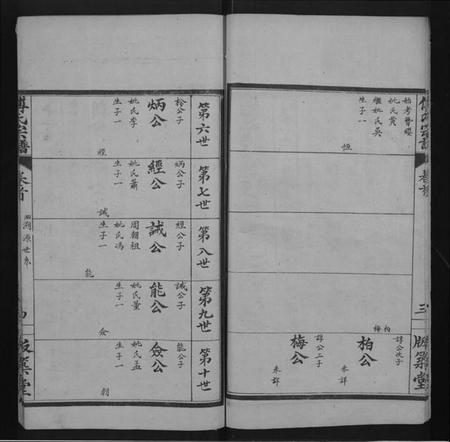 始考譽嬰
妣氏黄
繼妣氏吳
生子一
恒
柏
梅
譚公次子
柏公
未詳
譚公三子
梅公
未詳
三
版築堂
傅氏宗譜
卷首
溯源世系
版築堂
第六世
第七世
第八世
第九世
第十世
炳公
妣氏李
生子一
經
炳公子
經公
妣氏蕭
生子一
誠
經公子
誠公
周朝祖
妣氏馮
生子一
能
誠公子
能公
妣氏董
生子一
僉
能公子
僉公
妣氏孟
生子一